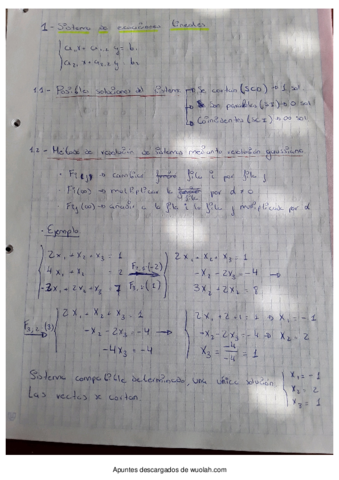 1- Sistema de ecuaciones lineales
a₁₁x + a₁₂ y = b₁
a₂₁ x + a₂₂ y b₂
1.1 - Posibles soluciones del sistema se cortan (SCD) → 1 sol.
Son paralelas (SI) → 0 sol
Coincidentes (SCI) → ∞ sol
1.2 - Método de resolución de sistema mediante reducción gaussiana
→ cambiar fila i por fila j
Fi(α) → multiplicar la fila por α ≠ 0
Fij(α) → añadir a la fila i la fila j multiplicada por α
• Ejemplo
2x₁ + x₂ + x₃ = 1
4x₁ + x₂ = 2
-2x₁ + 2x₂ + x₃ = 7
F₂,₁(-2)
F₃,₁(1)
2x₁ + x₂ + x₃ = 1
-x₂ - 2x₃ = -4 →
3x₂ + 2x₃ = 8
F₃,₂(3)
2x₁ + x₂ + x₃ = 1
-x₂ - 2x₃ = -4 →
-4x₃ = -4
2x₁ + 2 + 1 = 1 → x₁ = -1
-x₂ - 2x₃ = -4 → x₂ = 2
x₃ = -4/-4 = 1
Sistema compatible determinado, una única solución
Las rectas se cortan.
x₁ = -1
x₂ = 2
x₃ = 1
Apuntes descargados de wuolah.com